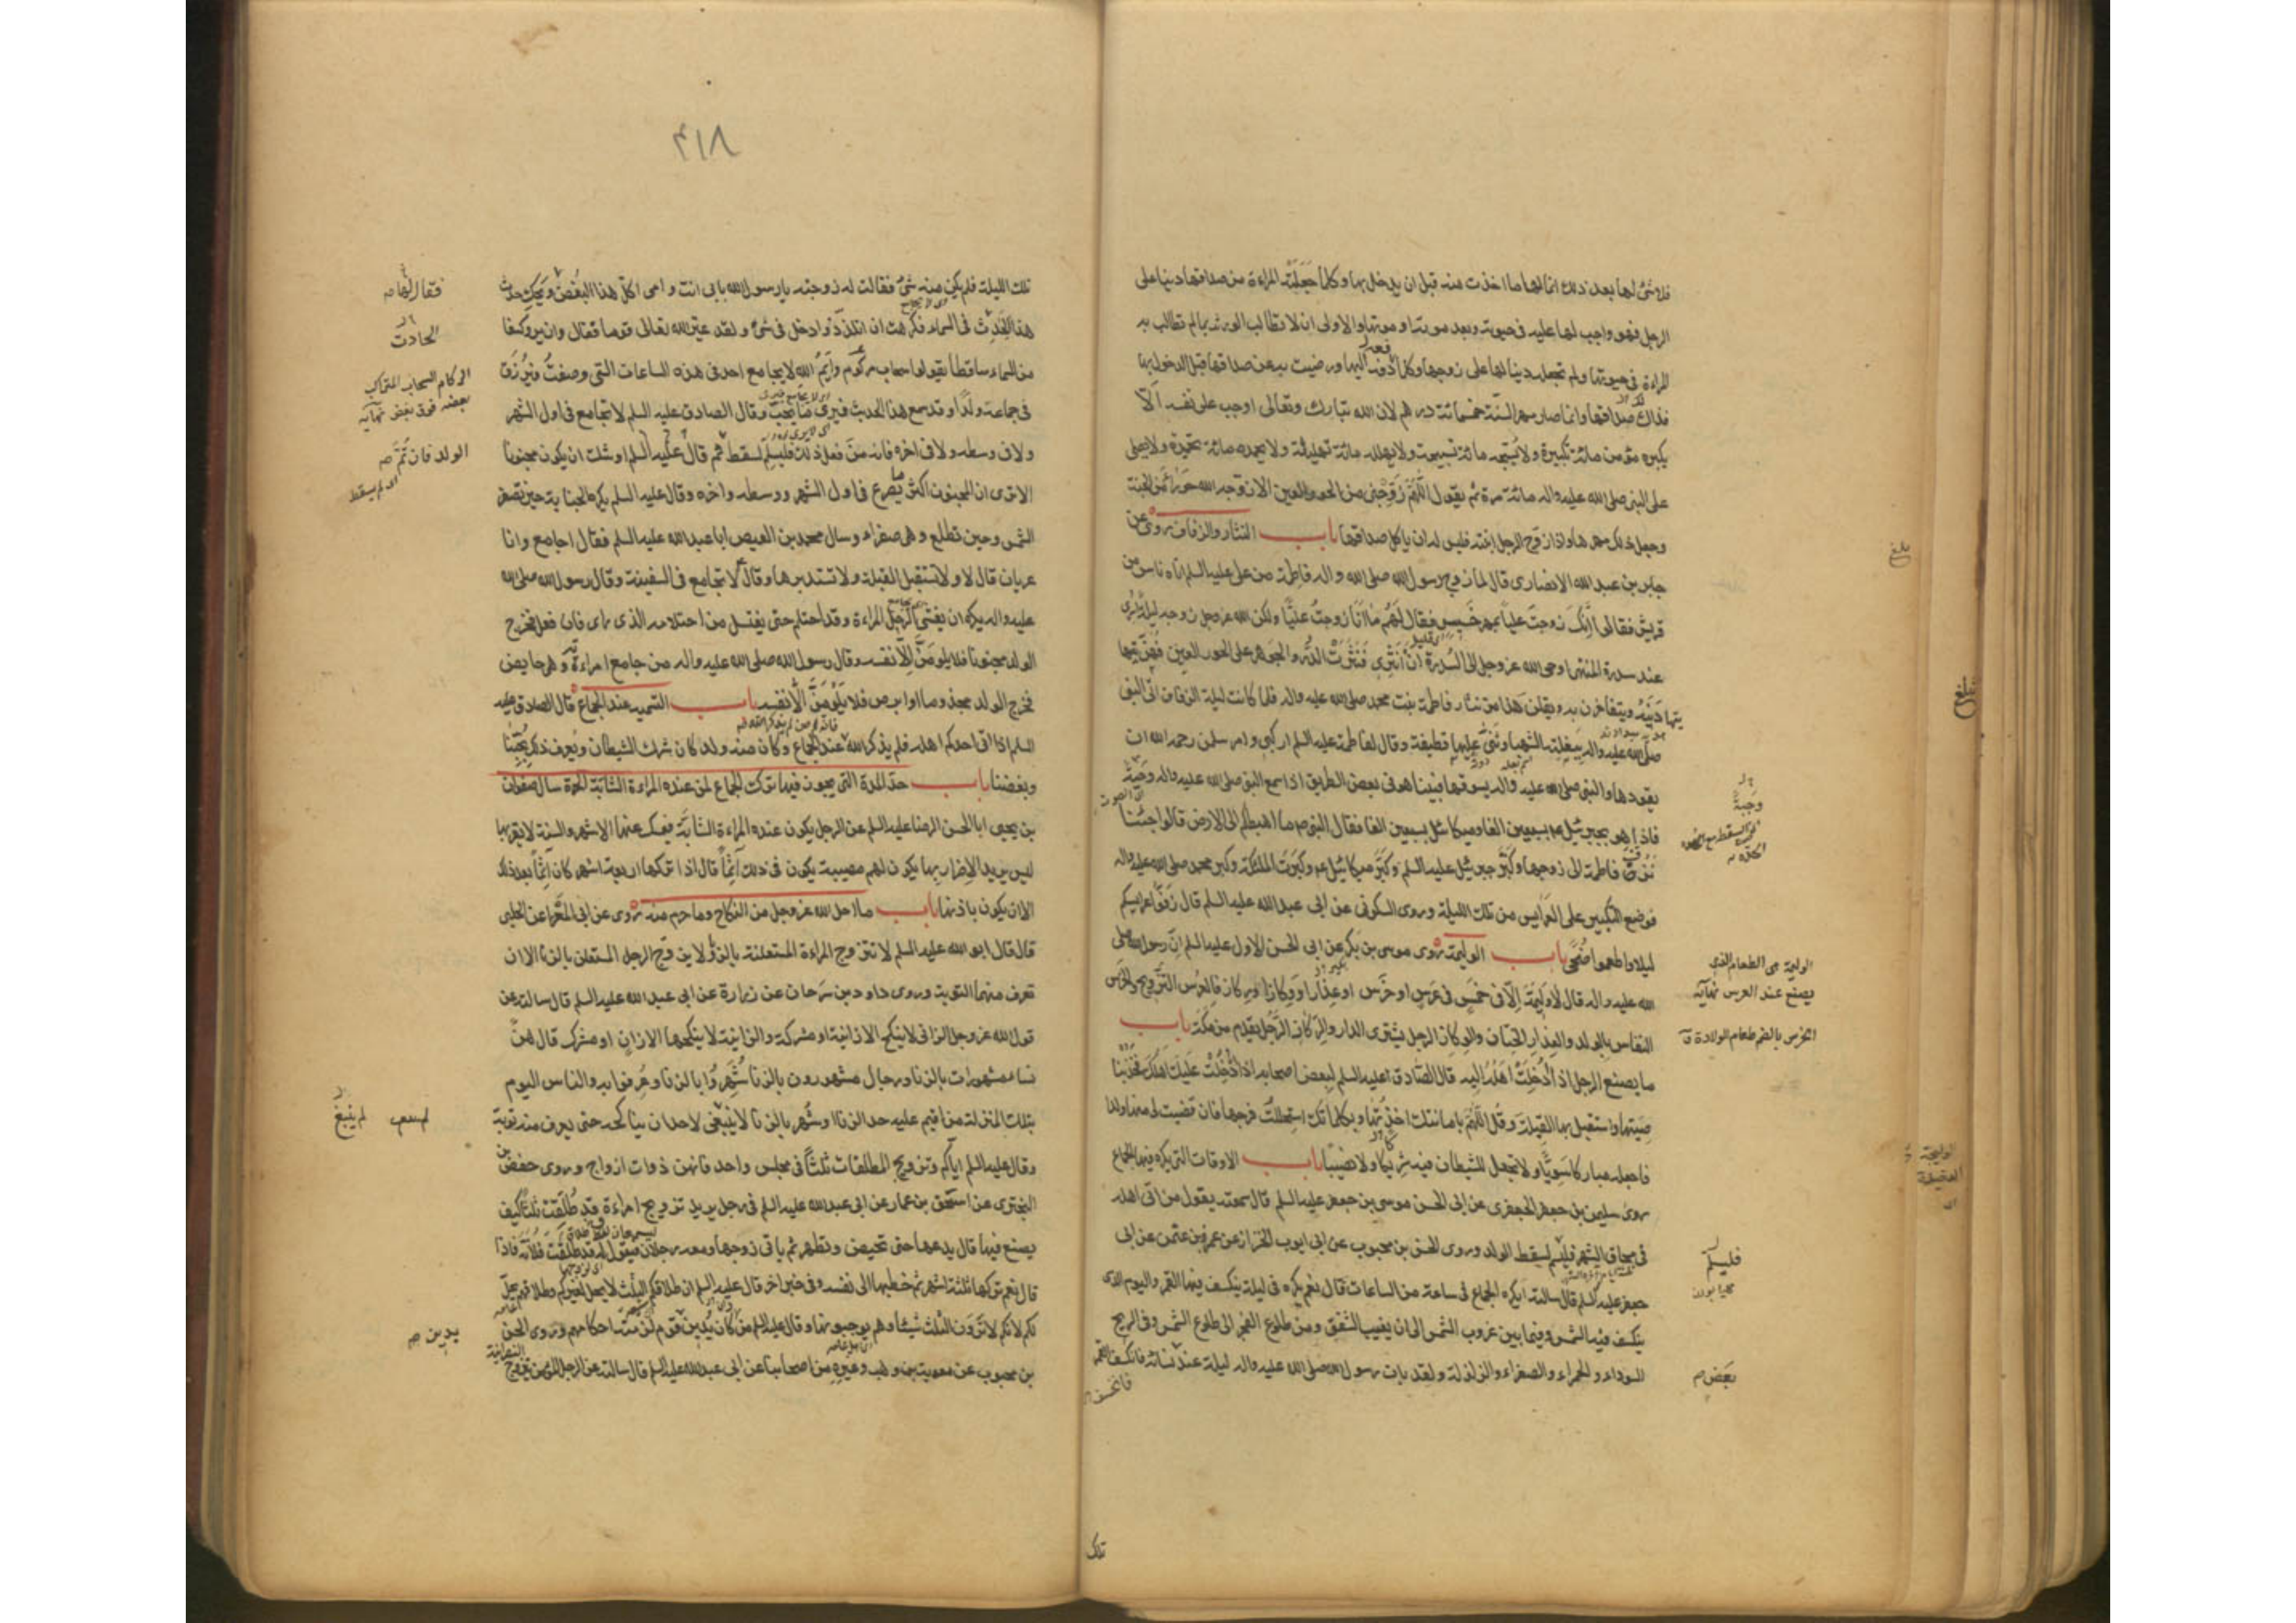 فلا شئ لها بعد ذلك انما لها ما اخذت منه قبل ان يدخل بها وكلما جعلته المراءة من صداقها دينا على
الرجل فهو واجب لها عليه فى حيوته وبعد موته او موتها والاولى ان لا تطالب الورثة بما لم تطالب به
المراءة فى حيوتها ولم تجعله دينا لها على زوجها وكلما دفعه اليها ورضيت به عن صداقها قبل الدخول بها
فذاك صداقها وانما صار مهر السنة خمسمائة درهم لان الله تبارك وتعالى اوجب على نفسه الّا
يكبره مؤمن مائة تكبيرة ولا يسبحه مائة تسبيحة ولا يهلله مائة تهليلة ولا يحمده مائة تحميدة ولا يصلى
على النبى صلى الله عليه واله مائة مرة ثم يقول اللّهم زوجنى من الحور العين الا زوجه الله حوراء من الجنة
وجعل ذلك مهرها واذا زوج الرجل ابنته فليس له ان ياكل صداقها باب النثار والزفاف روى عن
جابر بن عبد الله الانصارى قال لما زوج رسول الله صلى الله واله فاطمة من على عليه السلم اتاه ناس من
قريش فقالوا انك زوجت عليا بمهر خسيس فقال لهم ما انا زوجت عليّا ولكن الله عز وجل زوجه ليلة اسرى
عند سدرة المنتهى اوحى الله عز وجل الى السدرة ان انثرى فنثرت الدر والجوهر على الحور العين فهن
يتهادينه ويتفاخرن به ويقلن هذا من نثار فاطمة بنت محمد صلى الله عليه واله فلما كانت ليلة الزفاف اتى النبى
صلى الله عليه واله ببغلته الشهبا وثنى عليها قطيفة وقال لفاطمة عليه السلم اركبى وامر سلمن رحمه الله ان
يقودها والنبى صلى الله عليه واله يسوقها فبينا هو فى بعض الطريق اذا سمع النبى صلى الله عليه واله وجبة
فاذا هو بجبرئيل عم بسبعين الفا وميكائيل بسبعين الفا فقال النبى صم ما اهبطكم الى الارض قالوا جئنا
نزف فاطمة الى زوجها وكبر جبرئيل عليه السلم وكبر ميكائيل عم وكبرت الملئكة وكبر محمد صلى الله عليه واله
فوضع التكبير على العرايس من تلك الليلة وروى السكونى عن ابى عبد الله عليه السلم قال زفوا عرايسكم
ليلا واطعموا ضحى باب الوليمة روى موسى بن بكر عن ابى الحسن الاول عليه السلم ان رسول الله صلى
الله عليه واله قال لا وليمة الا فى خمس فى عرس او خرس او عذار او وكار او ركاز فالعرس التزويج والخرس
النفاس بالولد والعذار الختان والوكار الرجل يشترى الدار والركاز الرجل يقدم من مكة باب
ما يصنع الرجل اذا ادخلت اهله اليه قال الصادق عليه السلم لبعض اصحابه اذا ادخلت عليك اهلك فخذ
صيتها واستقبل بها القبلة وقل اللهم بامانتك اخذتها وبكلماتك استحللت فرجها فان قضيت لى منها ولدا
فاجعله مباركا سويّا ولا تجعل للشيطان فيه شريكا ولا نصيبا باب الاوقات التى يكره فيها الجماع
روى سليمن بن جعفر الجعفرى عن ابى الحسن موسى بن جعفر عليه السلم قال سمعته يقول من اتى اهله
فى محاق الشهر فليسلم لسقط الولد وروى الحسن بن محبوب عن ابى ايوب الخزاز عن عمرو بن عثمن عن ابى
جعفر عليه السلم قال سالته ايكره الجماع فى ساعة من الساعات قال نعم يكره فى ليلة ينكسف فيها القمر واليوم الذى
ينكسف فيه الشمس وفيما بين غروب الشمس الى ان يغيب الشفق ومن طلوع الفجر الى طلوع الشمس وفى الريح
السوداء والحمراء والصفراء والزلزلة ولقد بات رسول الله صلى الله عليه واله ليلة عند نسائه فانكسف القمر
تلك
بلغ
وجبة
الوليمة هى الطعام الذى
يصنع عند العرس نهاية
الخرس بالضم طعام الولادة
فليسلم
بعض
٤١٨
تلك الليلة فلم يكن منه شئ فقالت له زوجته يا رسول الله بابى انت وامى اكل هذا البغض ويحك حدث
هذا الحدث فى السماء فكرهت ان اتلذذ وادخل فى شئ ولقد عير الله تعالى قوما فقال وان يروا كسفا
من السماء ساقطا يقولوا سحاب مركوم وايم الله لا يجامع احد فى هذه الساعات التى وصفت فيرزق
فى جماعه ولدا وقد سمع هذا الحديث فيرى ما يحب وقال الصادق عليه السلم لا تجامع فى اول الشهر
ولا فى وسطه ولا فى اخره فانه من فعل ذلك فليسلم لسقط ثم قال عليه السلم اوشك ان يكون مجنونا
الا ترى ان المجنون اكثر ما يصرع فى اول الشهر ووسطه واخره وقال عليه السلم يكره الجنابة حين تصفر
الشمس وحين تطلع وهى صفراء وسال محمد بن العيص ابا عبد الله عليه السلم فقال اجامع وانا
عريان قال لا ولا تستقبل القبلة ولا تستدبرها وقال ع لا تجامع فى السفينة وقال رسول الله صلى الله
عليه واله يكره ان يغشى الرجل المراءة وقد احتلم حتى يغتسل من احتلامه الذى راى فان فعل فخرج
الولد مجنونا فلا يلومن الا نفسه وقال رسول الله صلى الله عليه واله من جامع امراءة وهى حايض
فخرج الولد مجذوما او ابرص فلا يلومن الا نفسه باب التسميه عند الجماع قال الصادق عليه
السلم اذا اتى احدكم اهله فلم يذكر الله عند الجماع وكان منه ولد كان شرك الشيطان ويعرف ذلك بحبنا
وبغضنا باب حد المدة التى يجوز فيها ترك الجماع لمن عنده المراءة الشابة الحرة سال صفوان
بن يحيى ابا الحسن الرضا عليه السلم عن الرجل يكون عنده المراءة الشابة فيمسك عنها الاشهر والسنة لا يقربها
ليس يريد الاضرار بها يكون لهم مصيبة يكون فى ذلك آثما قال اذا تركها اربعة اشهر كان آثما بعد ذلك
الا ان يكون باذنها باب ما احل الله عز وجل من النكاح وما حرم منه روى عن ابى المغرا عن الحلبى
قال قال ابو عبد الله عليه السلم لا تتزوج المراءة المستعلنة بالزنا ولا يزوج الرجل المستعلن بالزنا الا ان
تعرف منهما التوبة وروى داود بن سرحان عن زرارة عن ابى عبد الله عليه السلم قال سالته عن
قول الله عز وجل الزانى لا ينكح الا زانية او مشركة والزانية لا ينكحها الا زان او مشرك قال هن
نساء مشهورات بالزنا ورجال مشهورون بالزنا شهروا بالزنا وعرفوا به والناس اليوم
بتلك المنزلة من اقيم عليه حد الزنا او شهر بالزنا لا ينبغى لاحد ان يناكحه حتى يعرف منه توبة
وقال عليه السلم اياكم وتزويج المطلقات ثلثا فى مجلس واحد فانهن ذوات ازواج وروى حفص بن
البخترى عن اسحق بن عمار عن ابى عبد الله عليه السلم فى رجل يريد تزويج امراءة قد طلقت ثلثا كيف
يصنع فيها قال يدعها حتى تحيض وتطهر ثم ياتى زوجها ومعه رجلان فيقول له قد طلقت فلانة فاذا
قال نعم تركها ثلثة اشهر ثم خطبها الى نفسه وفى خبر اخر قال عليه السلم ان طلاقكم الثلث لا يحل لغيركم وطلاقهم يحل
لكم لانكم لا ترون الثلث شيئا وهم يوجبونها وقال عليه السلم من كان يدين بدين قوم لزمته احكامهم وروى الحسن
بن محبوب عن معوية بن وهب وغيره من اصحابنا عن ابى عبد الله عليه السلم قال سالته عن الرجل المؤمن يتزوج
النصرانية
الحادث
الركام السحاب المتراكب
بعضه فوق بعض نهاية
الولد فان تمّ
اى لم يسقط
لم ينبغ
يدين